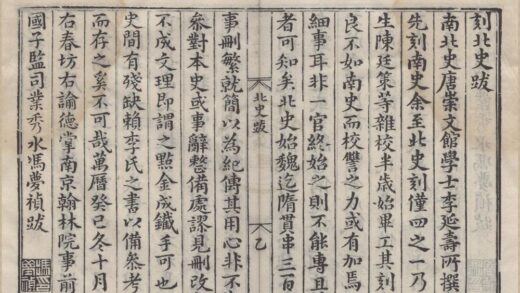 刻北史跋
南北史唐崇文館學士李延壽所撰
先刻南史余至北史刻僅四之一乃
生陳廷策等雜校半歲始畢工其刻
良不如南史而校讐之力或有加焉
細事耳非一官終始之則不能專且
者可知矣北史始魏迄隋貫串三百
北史跋
乙
事刪繁就簡以為紀傳其用心非不
參對本史或事辭整備處謬見刪改
不成文理即謂之點金成鐵手可也
史間有殘缺賴李氏之書以備參考
而存之奚不可哉萬曆癸巳冬十月
右春坊右諭德掌南京翰林院事前
國子監司業秀水馮夢禎跋